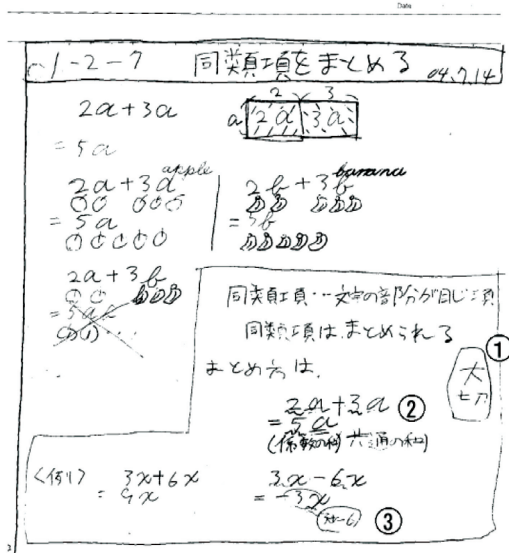 Date
1-2-7 同類項をまとめる 04.7.14
2a+3a
= 5a
2 3
a 2a 3a
2a+3a apple
= 5a
2b+3b banana
= 5b
2a+3b
同類項…文字の部分が同じ項
同類項は、まとめられる
①
まとめ方は、
大
2a+3a ②
= 5a
(係数の和 共通の
〈例1〉 3x+6x
= 9x
3x-6x
= -3x
③